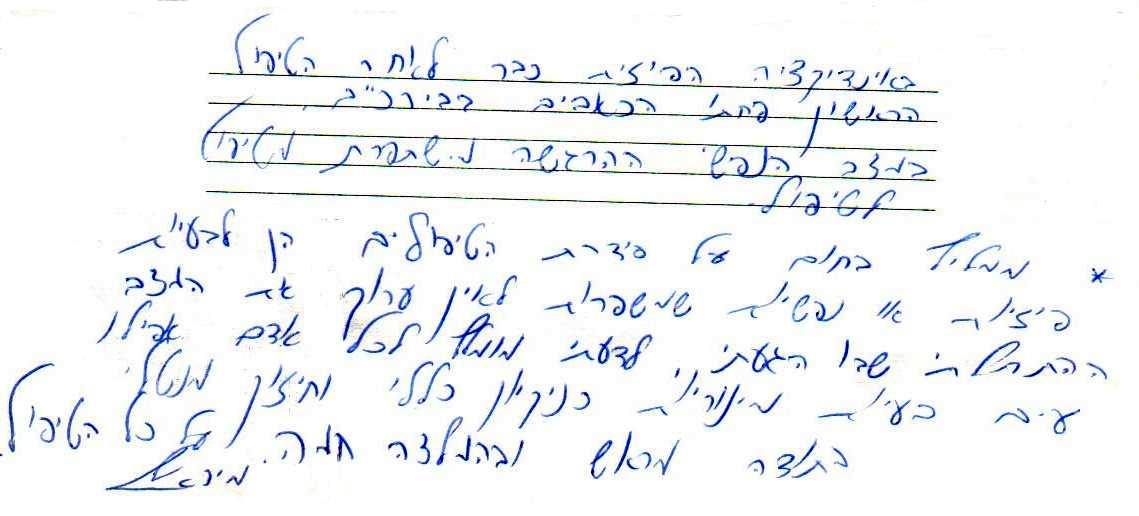 באינדיקציה הפיזית כבר לאחר הטיפול
הראשון פחתו הכאבים בבירכ"ב.
במצב הנפשי ההרגשה משתפרת מטיפול
לטיפול.
* ממליץ בחום על סידרת הטיפולים הן לבעיות
פיזיות או נפשיות שמשפרות לאין ערוך את המצב
ההתחלתי שבו הגעתי לדעתי מומלץ לכל אדם אפילו
עם בעיות מינוריות כניקיון כללי וחיזוק מנטלי
בתודה מראש ובהמלצה חמה. על כל הטיפול